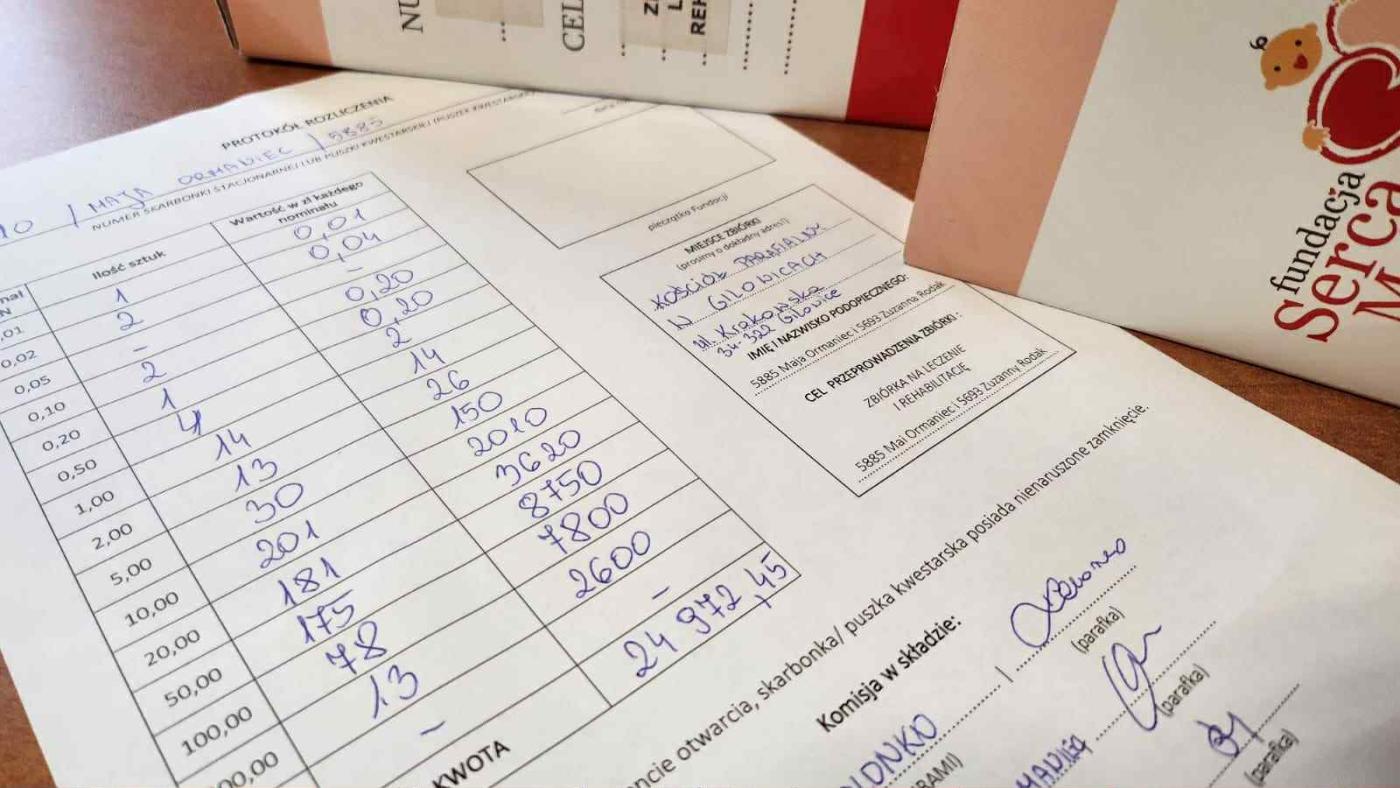 NU
CEL
ZB
L
REH
fundacja
Serca
M
PROTOKÓŁ ROZLICZENIA
10 / MAJA ORMANIEC / 5885
NUMER SKARBONKI STACJONARNEJ LUB PUSZKI KWESTARSKIEJ (PUSZEK KWESTARSKI
Ilość sztuk Wartość w zł każdego nominału
,01 1 0,01
0,02 2 0,04
0,05 – –
0,10 2 0,20
0,20 1 0,20
0,50 4 2
1,00 14 14
2,00 13 26
5,00 30 150
10,00 201 2010
20,00 181 3620
50,00 175 8750
100,00 78 7800
00,00 13 2600
– –
KWOTA 24 972,45
pieczątka Fundacji
MIEJSCE ZBIÓRKI
(prosimy o dokładny adres!)
KOŚCIÓŁ PARAFIALNY
W GILOWICACH
ul. Krakowska
34-322 Gilowice
IMIĘ I NAZWISKO PODOPIECZNEGO:
5885 Maja Ormaniec i 5693 Zuzanna Rodak
CEL PRZEPROWADZENIA ZBIÓRKI :
ZBIÓRKA NA LECZENIE
I REHABILITACJĘ
5885 Mai Ormaniec i 5693 Zuzanny Rodak
ncie otwarcia, skarbonka/ puszka kwestarska posiada nienaruszone zamknięcie.
Komisja w składzie:
(parafka)
(parafka)
(parafka)